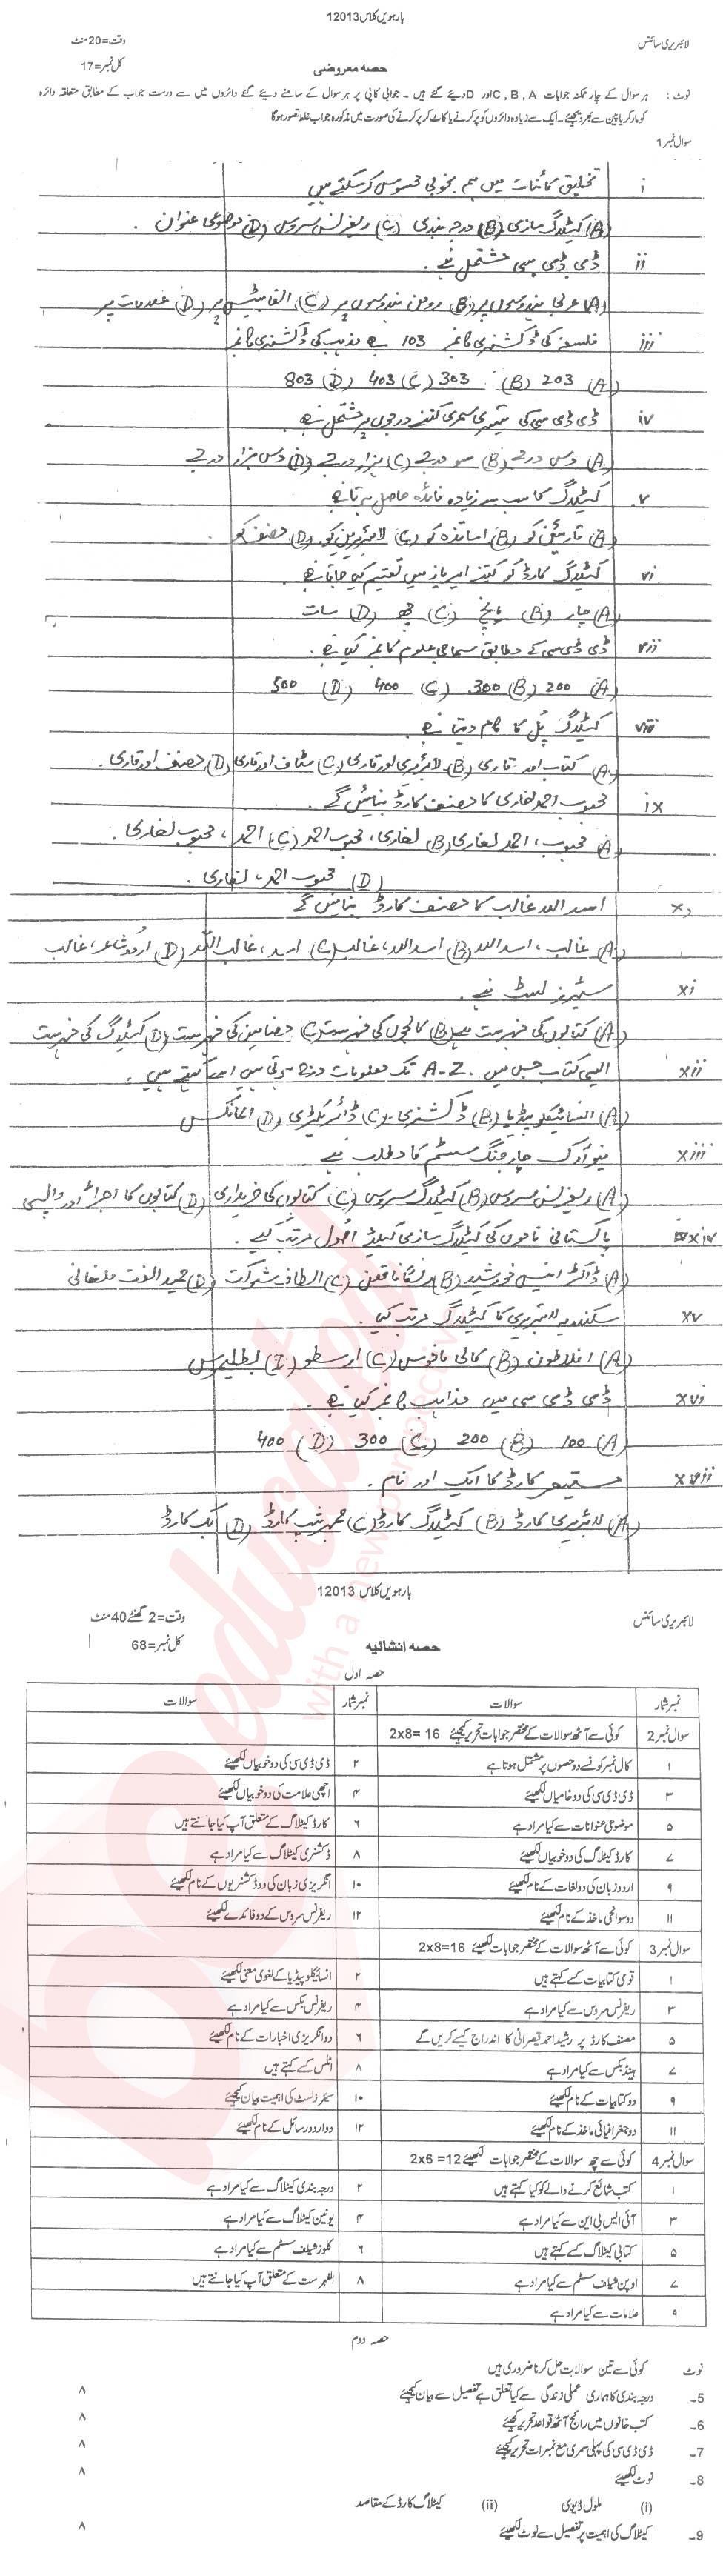 بارہویں کلاس 12013
لائبریری سائنس
وقت=20 منٹ
حصہ معروضی
کل نمبر=17
نوٹ : ہر سوال کے چار ممکنہ جوابات A ، B ، C اور D دیئے گئے ہیں ۔ جوابی کاپی پر ہر سوال کے سامنے دیئے گئے دائروں میں سے درست جواب کے مطابق متعلقہ دائرہ
کو مارکر یا پین سے بھر دیجئیے ۔ ایک سے زیادہ دائروں کو پر کرنے یا کاٹ کر پر کرنے کی صورت میں مذکورہ جواب غلط تصور ہوگا
سوال نمبر 1
i تخلیق کائنات میں ہم بخوبی محسوس کر سکتے ہیں
(A) کیٹلاگ سازی (B) درجہ بندی (C) ریفرنس سروس (D) موضوعی عنوان ۔
ii ڈی ڈی سی مشتمل ہے ۔
(A) عربی ہندسوں پر (B) رومن ہندسوں پر (C) الفابیٹس پر (D) علامات پر
iii فلسفہ کی ڈکشنری کا نمبر 103 ہے مذہب کی ڈکشنری کا نمبر
(A) 203 (B) 303 (C) 403 (D) 803
iv ڈی ڈی سی کی تیسری سمری کتنے درجوں پر مشتمل ہے
(A) دس درجے (B) سو درجے (C) ہزار درجے (D) دس ہزار درجے
v کیٹلاگ کا سب سے زیادہ فائدہ حاصل ہوتا ہے
(A) قارئین کو (B) اساتذہ کو (C) لائبریرین کو (D) مصنف کو ۔
vi کیٹلاگ کارڈ کو کتنے ایریاز میں تقسیم کیا جاتا ہے ۔
(A) چار (B) پانچ (C) چھ (D) سات
vii ڈی ڈی سی کے مطابق سماجی علوم کا نمبر کیا ہے ۔
(A) 200 (B) 300 (C) 400 (D) 500
viii کیٹلاگ پُل کا کام دیتا ہے ۔
(A) کتاب اور قاری (B) لائبریری اور قاری (C) سٹاف اور قاری (D) مصنف اور قاری ۔
ix محبوب احمد لغاری کا مصنف کارڈ بنائیں گے ۔
(A) محبوب، احمد لغاری (B) لغاری، محبوب احمد (C) احمد، محبوب لغاری ۔
(D) محبوب احمد، لغاری ۔
x اسد اللہ غالب کا مصنف کارڈ بنائیں گے
(A) غالب، اسد اللہ (B) اسد اللہ، غالب (C) اسد، غالب اللہ (D) اردو شاعر، غالب
xi سیئرز لسٹ ہے ۔
(A) کتابوں کی فہرست ہے (B) کالجوں کی فہرست (C) مضامین کی فہرست (D) کیٹلاگ کی فہرست
xii ایسی کتاب جس میں A-Z تک معلومات درج ہوتی ہیں اسے کہتے ہیں ۔
(A) انسائیکلوپیڈیا (B) ڈکشنری (C) ڈائریکٹری (D) المانکس
xiii نیوآرک چارجنگ سسٹم کا مطلب ہے
(A) ریفرنس سروس (B) کیٹلاگ سروس (C) کتابوں کی خریداری (D) کتابوں کا اجراء اور واپسی
xiv پاکستانی ناموں کی کیٹلاگ سازی کیلئے اصول مرتب کیے ۔
(A) ڈاکٹر انیس خورشید (B) رنگاناتھن (C) الطاف شوکت (D) حمید الفت ملغانی
xv سکندریہ لائبریری کا کیٹلاگ مرتب کیا ۔
(A) افلاطون (B) کالی ماخوس (C) ارسطو (D) بطلیموس
xvi ڈی ڈی سی میں مذاہب کا نمبر کیا ہے ۔
(A) 100 (B) 200 (C) 300 (D) 400
xvii کارڈ کا ایک اور نام ۔
(A) لائبریری کارڈ (B) کیٹلاگ کارڈ (C) ممبرشپ کارڈ (D) بک کارڈ
بارہویں کلاس 12013
لائبریری سائنس
وقت=2 گھنٹے 40 منٹ
حصہ انشائیہ
کل نمبر=68
حصہ اول
نمبر شمار سوالات نمبر شمار سوالات
سوال نمبر 2 کوئی سے آٹھ سوالات کے مختصر جوابات تحریر کیجئیے 2x8= 16
۱ کال نمبر کونسے دو حصوں پر مشتمل ہوتا ہے ۲ ڈی ڈی سی کی دو خوبیاں لکھیئے
۳ ڈی ڈی سی کی دو خامیاں لکھیئے ۴ اچھی علامت کی دو خوبیاں لکھیئے
۵ موضوعی عنوانات سے کیا مراد ہے ۶ کارڈ کیٹلاگ کے متعلق آپ کیا جانتے ہیں
۷ کارڈ کیٹلاگ کی دو خوبیاں لکھیئے ۸ ڈکشنری کیٹلاگ سے کیا مراد ہے
۹ اردو زبان کی دو لغات کے نام لکھیئے ۱۰ انگریزی زبان کی دو ڈکشنریوں کے نام لکھیئے
۱۱ دو سوانحی ماخذ کے نام لکھیئے ۱۲ ریفرنس سروس کے دو فائدے لکھیئے
سوال نمبر 3 کوئی سے آٹھ سوالات کے مختصر جوابات لکھیئے 2x8=16
۱ قومی کتابیات کسے کہتے ہیں ۲ انسائیکلوپیڈیا کے لغوی معنی لکھیئے
۳ ریفرنس سروس سے کیا مراد ہے ۴ ریفرنس بکس سے کیا مراد ہے
۵ مصنف کارڈ پر رشید احمد قیصرانی کا اندراج کیسے کریں گے ۶ دو انگریزی اخبارات کے نام لکھیئے
۷ ہینڈ بکس سے کیا مراد ہے ۸ اٹلس کسے کہتے ہیں
۹ دو کتابیات کے نام لکھیئے ۱۰ سیئرز لسٹ کی اہمیت بیان کیجئے
۱۱ دو جغرافیائی ماخذ کے نام لکھیئے ۱۲ دو اردو رسائل کے نام لکھیئے
سوال نمبر 4 کوئی سے چھ سوالات کے مختصر جوابات لکھیئے 2x6 =12
۱ کتب شائع کرنے والے کو کیا کہتے ہیں ۲ درجہ بندی کیٹلاگ سے کیا مراد ہے
۳ آئی ایس بی این سے کیا مراد ہے ۴ یونین کیٹلاگ سے کیا مراد ہے
۵ کتابی کیٹلاگ کسے کہتے ہیں ۶ کلوز شیلف سسٹم سے کیا مراد ہے
۷ اوپن شیلف سسٹم سے کیا مراد ہے ۸ الفہرست کے متعلق آپ کیا جانتے ہیں
۹ علامات سے کیا مراد ہے
حصہ دوم
نوٹ کوئی سے تین سوالات حل کرنا ضروری ہیں
5- درجہ بندی کا ہماری عملی زندگی سے کیا تعلق ہے تفصیل سے بیان کیجئیے ۸
6- کتب خانوں میں رائج آٹھ قواعد تحریر کیجئیے ۸
7- ڈی ڈی سی کی پہلی سمری مع نمبرات تحریر کیجئیے ۸
8- نوٹ لکھیئے ۸
(i) ملول ڈیوی (ii) کیٹلاگ کارڈ کے مقاصد
9- کیٹلاگ کی اہمیت پر تفصیل سے نوٹ لکھیئے ۸